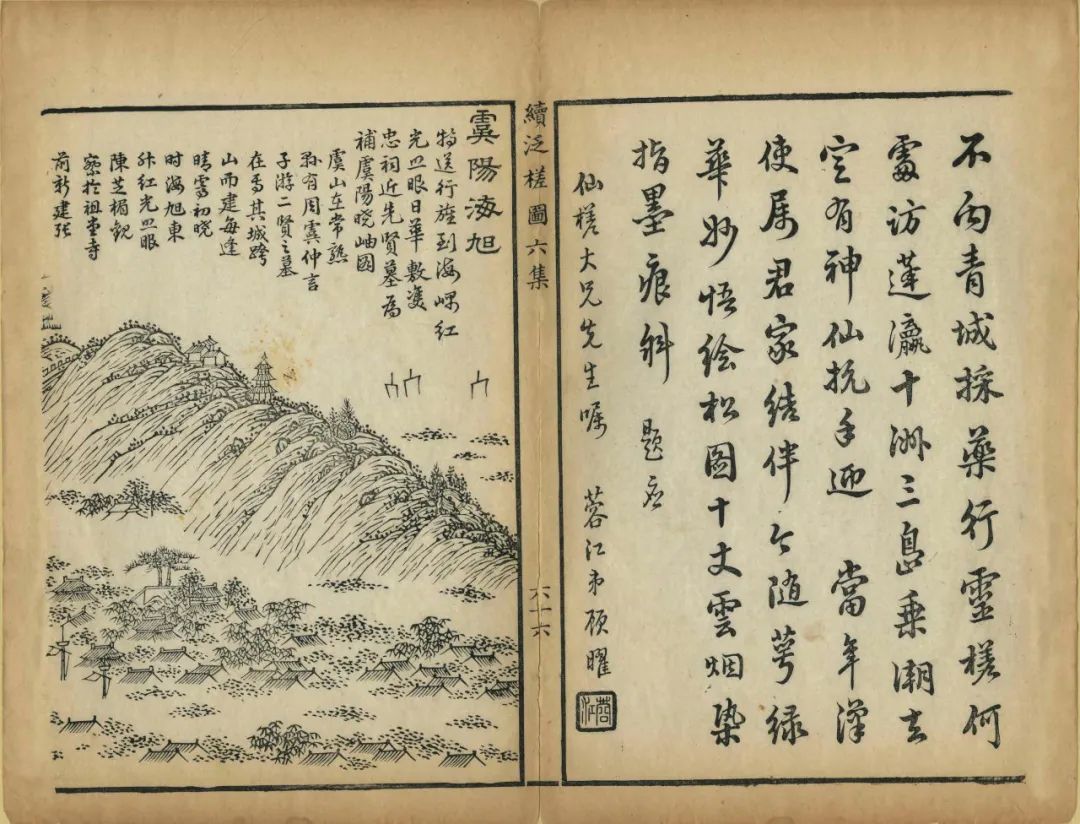 不向青城採藥行靈槎何
處訪蓬瀛十洲三島乘潮去
定有神仙抗手迎 當年漢
使属君家结伴今随萼绿
華妙悟绘松圖十丈雲烟染
指墨痕斜 題
仙槎大兄先生嘱 蓉江弟顾曜
蓉江
續泛槎圖六集
六十六
虞陽海旭
特送行旌到海堧红
光照眼日華敷護
忠祠近先賢墓为
補虞陽晓岫圖
虞山在常熟
縣有周虞仲言
子游二賢之墓
在焉其城跨
山而建每逢
晴霽初晓
时海旭東
升红光照眼
陳芝楣觀
察於祖堂寺
前新建張